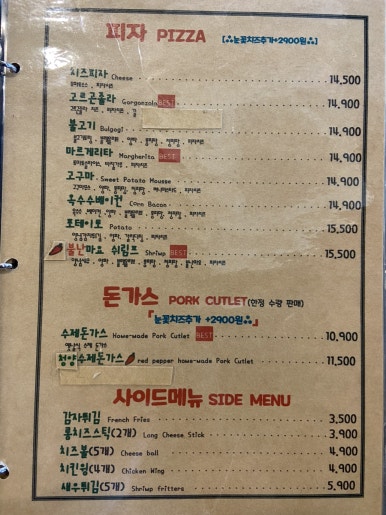 피자 PIZZA [눈꽃치즈추가+2900원]
치즈피자 Cheese 14,500
고르곤졸라 Gorgonzola BEST 14,900
불고기 Bulgogi 14,900
마르게리타 Margherita BEST 14,900
고구마 Sweet Potato Mousse 14,900
옥수수베이컨 Corn Bacon 14,900
포테이토 Potato 15,500
불난마요 쉬림프 Shriwp BEST 15,500
돈가스 PORK CUTLET(한정 수량 판매)
「눈꽃치즈추가 +2900원」
수제돈가스 Howe-wade Pork Cutlet BEST 10,900
청양수제돈가스 red pepper howe-wade Pork Cutlet 11,500
사이드메뉴 SIDE MENU
감자튀김 French Fries 3,500
롱치즈스틱(2개) Long Cheese Stick 3,900
치즈볼(5개) Cheese ball 4,900
치킨윙(4개) Chicken Wing 4,900
새우튀김(5개) Shriwp fritters 5,900